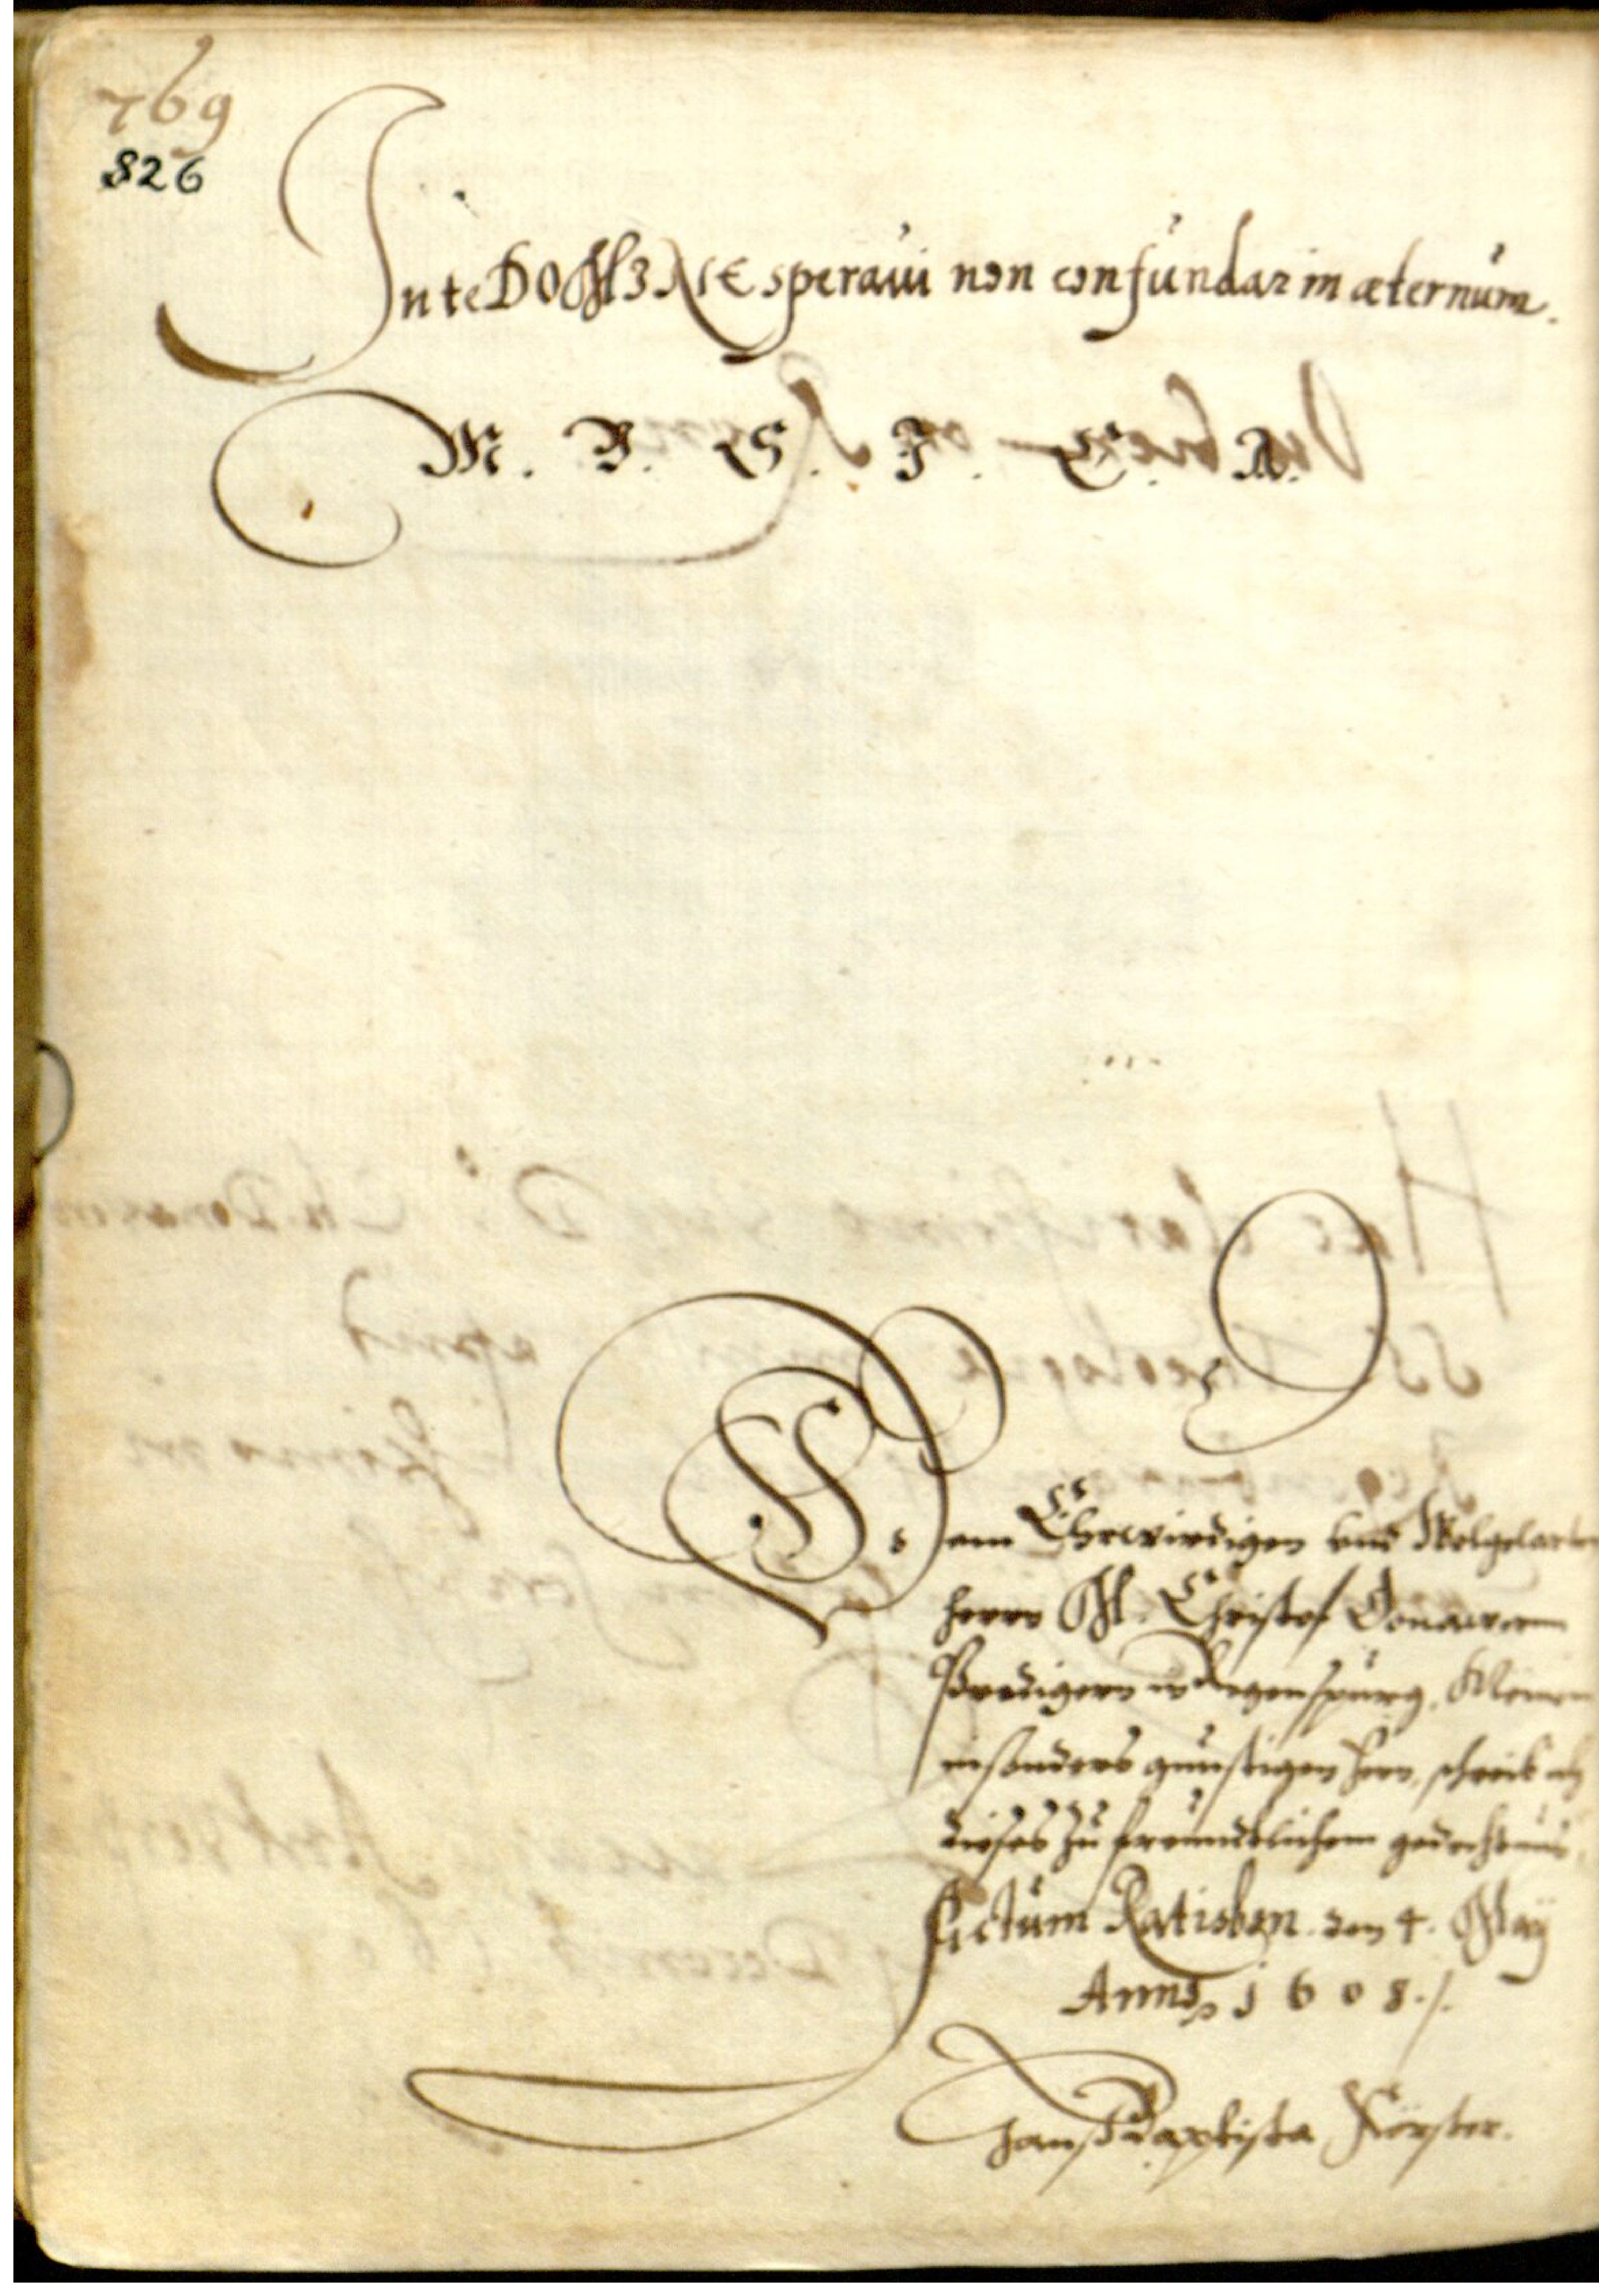 769
826
In te DOMINE speravi non confundar in æternum.
M. B. G. I. E. A.
Dem Ehrwirdigen vnd Wolgelarten
herrn M. Christof Donawern
Predigern in Regenspurg, Meinem
insonders gunstigen herrn, schreib ich
dieses zu freundtlichem gedechtnus.
Actum Ratisbon. den 4. May
Anno 1608.
Hanß Baptista Förster.